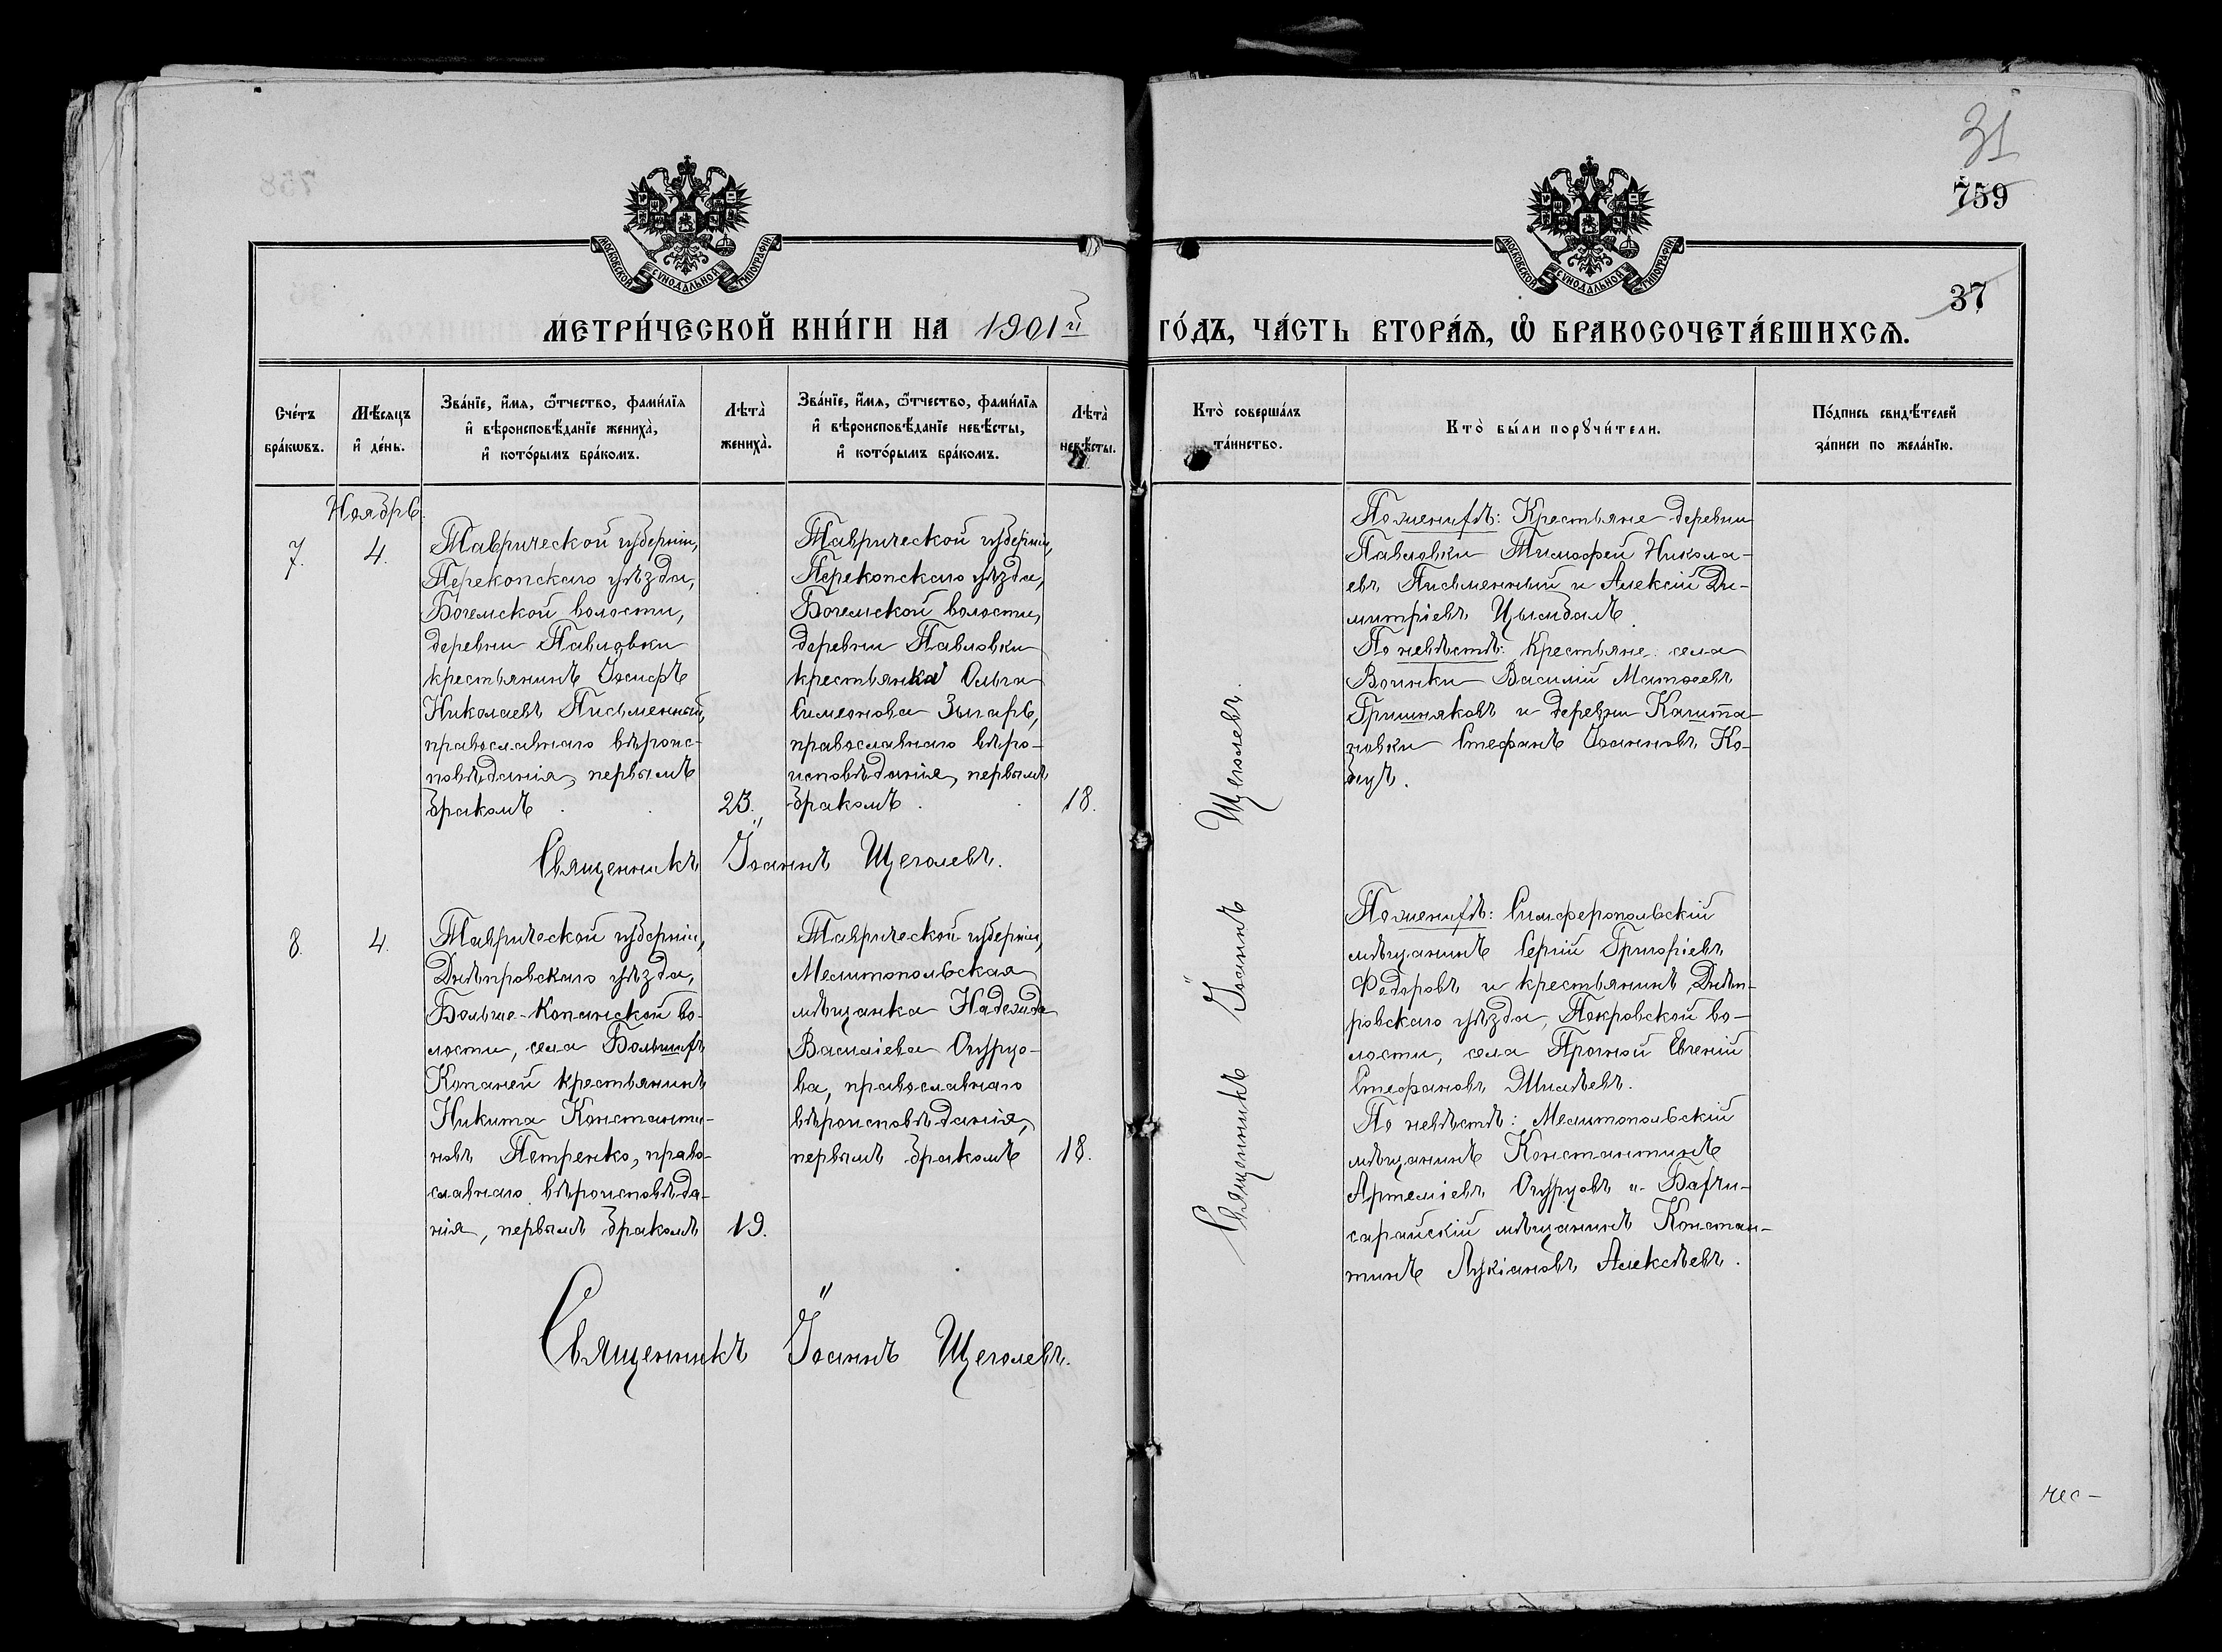 31
759
37
МОСКОВСКОЙ СѴНОДАЛЬНОЙ ТИПОГРАФІИ
МОСКОВСКОЙ СѴНОДАЛЬНОЙ ТИПОГРАФІИ
МЕТРИ́ЧЕСКОЙ КНИ́ГИ НА 1901й ГО́ДЪ, ЧА́СТЬ ВТОРА́Ѧ, Ѡ҆ БРАКОСОЧЕТА́ВШИХСѦ.
Сче́тъ
бра́кѡвъ.
Мѣ́сяцъ
и҆ де́нь.
Зва́нїе, и҆́мя, ѻ҆́тчество, фами́лїя
и҆ вѣроисповѣ́данїе жениха̀,
и҆ кото́рымъ бра́комъ.
Лѣта̀
жениха̀.
Зва́нїе, и҆́мя, ѻ҆́тчество, фами́лїя
и҆ вѣроисповѣ́данїе невѣ́сты,
и҆ кото́рымъ бра́комъ.
Лѣта̀
невѣ́сты.
Кто̀ соверша́лъ
та́инство.
Кто̀ бы́ли порꙋчи́тели.
По́дпись свидѣ́телей
за́писи по жела́нїю.
Ноябрь.
7.
4.
Таврической губерніи,
Перекопскаго уѣзда,
Богемской волости,
деревни Павловки
крестьянинъ Іосифъ
Николаевъ Письменный,
православнаго вѣроис-
повѣданія, первымъ
бракомъ
23.
Таврической губерніи,
Перекопскаго уѣзда,
Богемской волости,
деревни Павловки
крестьянка Ольга
Симеонова Зыгарь,
православнаго вѣро-
исповѣданія, первымъ
бракомъ
18.
Священникъ Іоаннъ Щеголевъ.
Священникъ Іоаннъ Щеголевъ.
По женихѣ: Крестьяне деревни
Павловки Тимофей Никола-
евъ Письменный и Алексій Ди-
митріевъ Цымбалъ.
По невѣстѣ: Крестьяне села
Воинки Василій Матѳеевъ
Гришняковъ и деревни Капита-
новки Стефанъ Іоанновъ Ко-
буз.
8.
4.
Таврической губерніи,
Днѣпровскаго уѣзда,
Больше-Копанской во-
лости, села Большихъ
Копаней крестьянинъ
Никита Константи-
новъ Петренко, право-
славнаго вѣроисповѣда-
нія, первымъ бракомъ
19.
Таврической губерніи,
Мелитопольская
мѣщанка Надежда
Василіева Огурцо-
ва, православнаго
вѣроисповѣданія,
первымъ бракомъ
18.
Священникъ Іоаннъ Щеголевъ.
По женихѣ: Симферопольскій
мѣщанинъ Сергій Григоріевъ
Федоровъ и крестьянинъ Днѣп-
ровскаго уѣзда, Покровской во-
лости, села Прогной Евгеній
Стефановъ Шилѣевъ.
По невѣстѣ: Мелитопольскій
мѣщанинъ Константинъ
Артеміевъ Огурцовъ и Бахчи-
сарайскій мѣщанинъ Констан-
тинъ Лукіановъ Алексѣевъ.
чес-